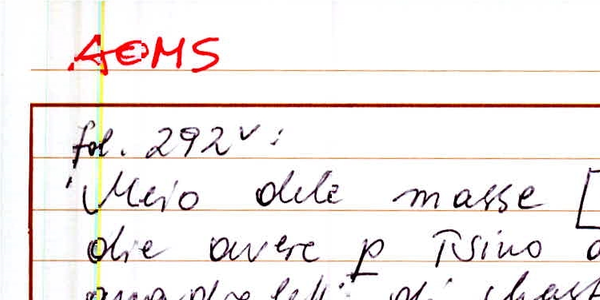 AOMS
fol. 292v:
'Meio dele masse [
die avere p Tsino
di